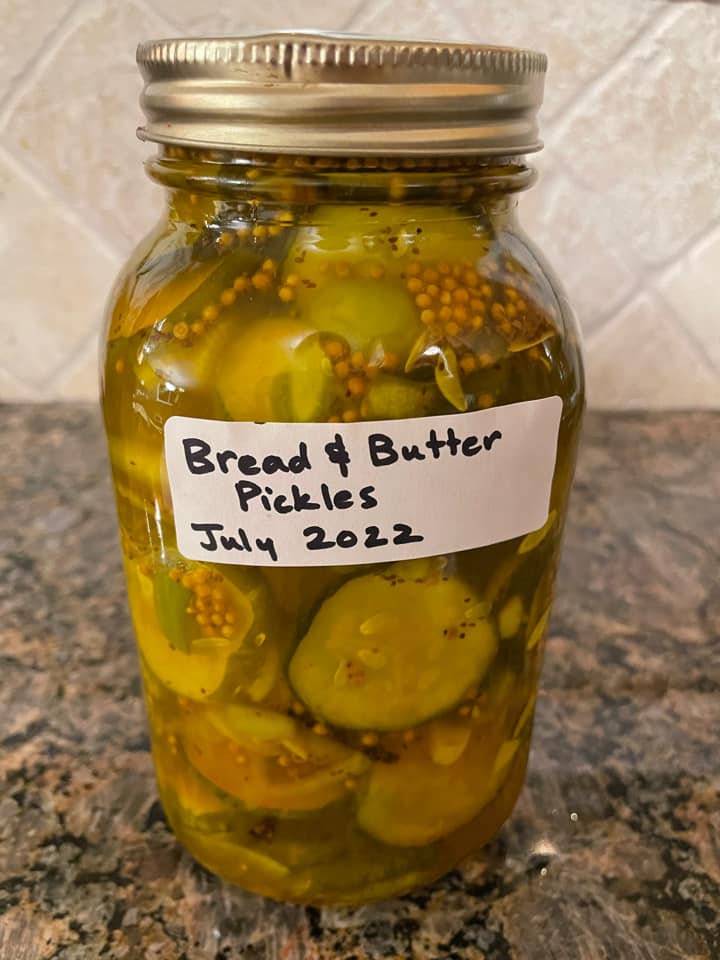 Bread & Butter
Pickles
July 2022